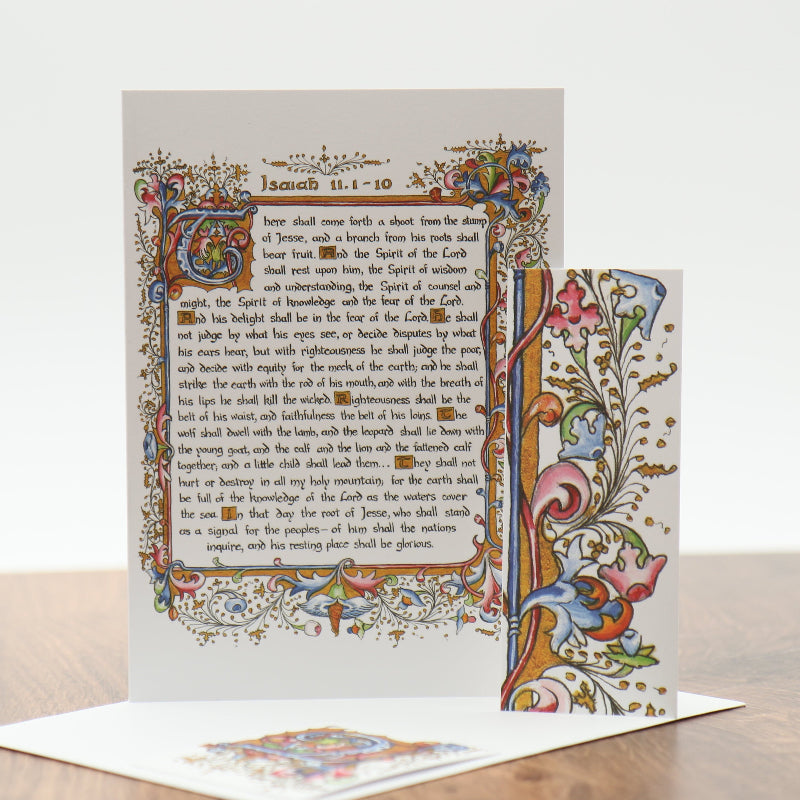 Isaiah 11.1-10
There shall come forth a shoot from the stump
of Jesse, and a branch from his roots shall
bear fruit. And the Spirit of the Lord
shall rest upon him, the Spirit of wisdom
and understanding, the Spirit of counsel and
might, the Spirit of knowledge and the fear of the Lord.
And his delight shall be in the fear of the Lord. He shall
not judge by what his eyes see, or decide disputes by what
his ears hear, but with righteousness he shall judge the poor,
and decide with equity for the meek of the earth; and he shall
strike the earth with the rod of his mouth, and with the breath of
his lips he shall kill the wicked. Righteousness shall be the
belt of his waist, and faithfulness the belt of his loins. The
wolf shall dwell with the lamb, and the leopard shall lie down with
the young goat, and the calf and the lion and the fattened calf
together; and a little child shall lead them... They shall not
hurt or destroy in all my holy mountain; for the earth shall
be full of the knowledge of the Lord as the waters cover
the sea. In that day the root of Jesse, who shall stand
as a signal for the peoples – of him shall the nations
inquire, and his resting place shall be glorious.